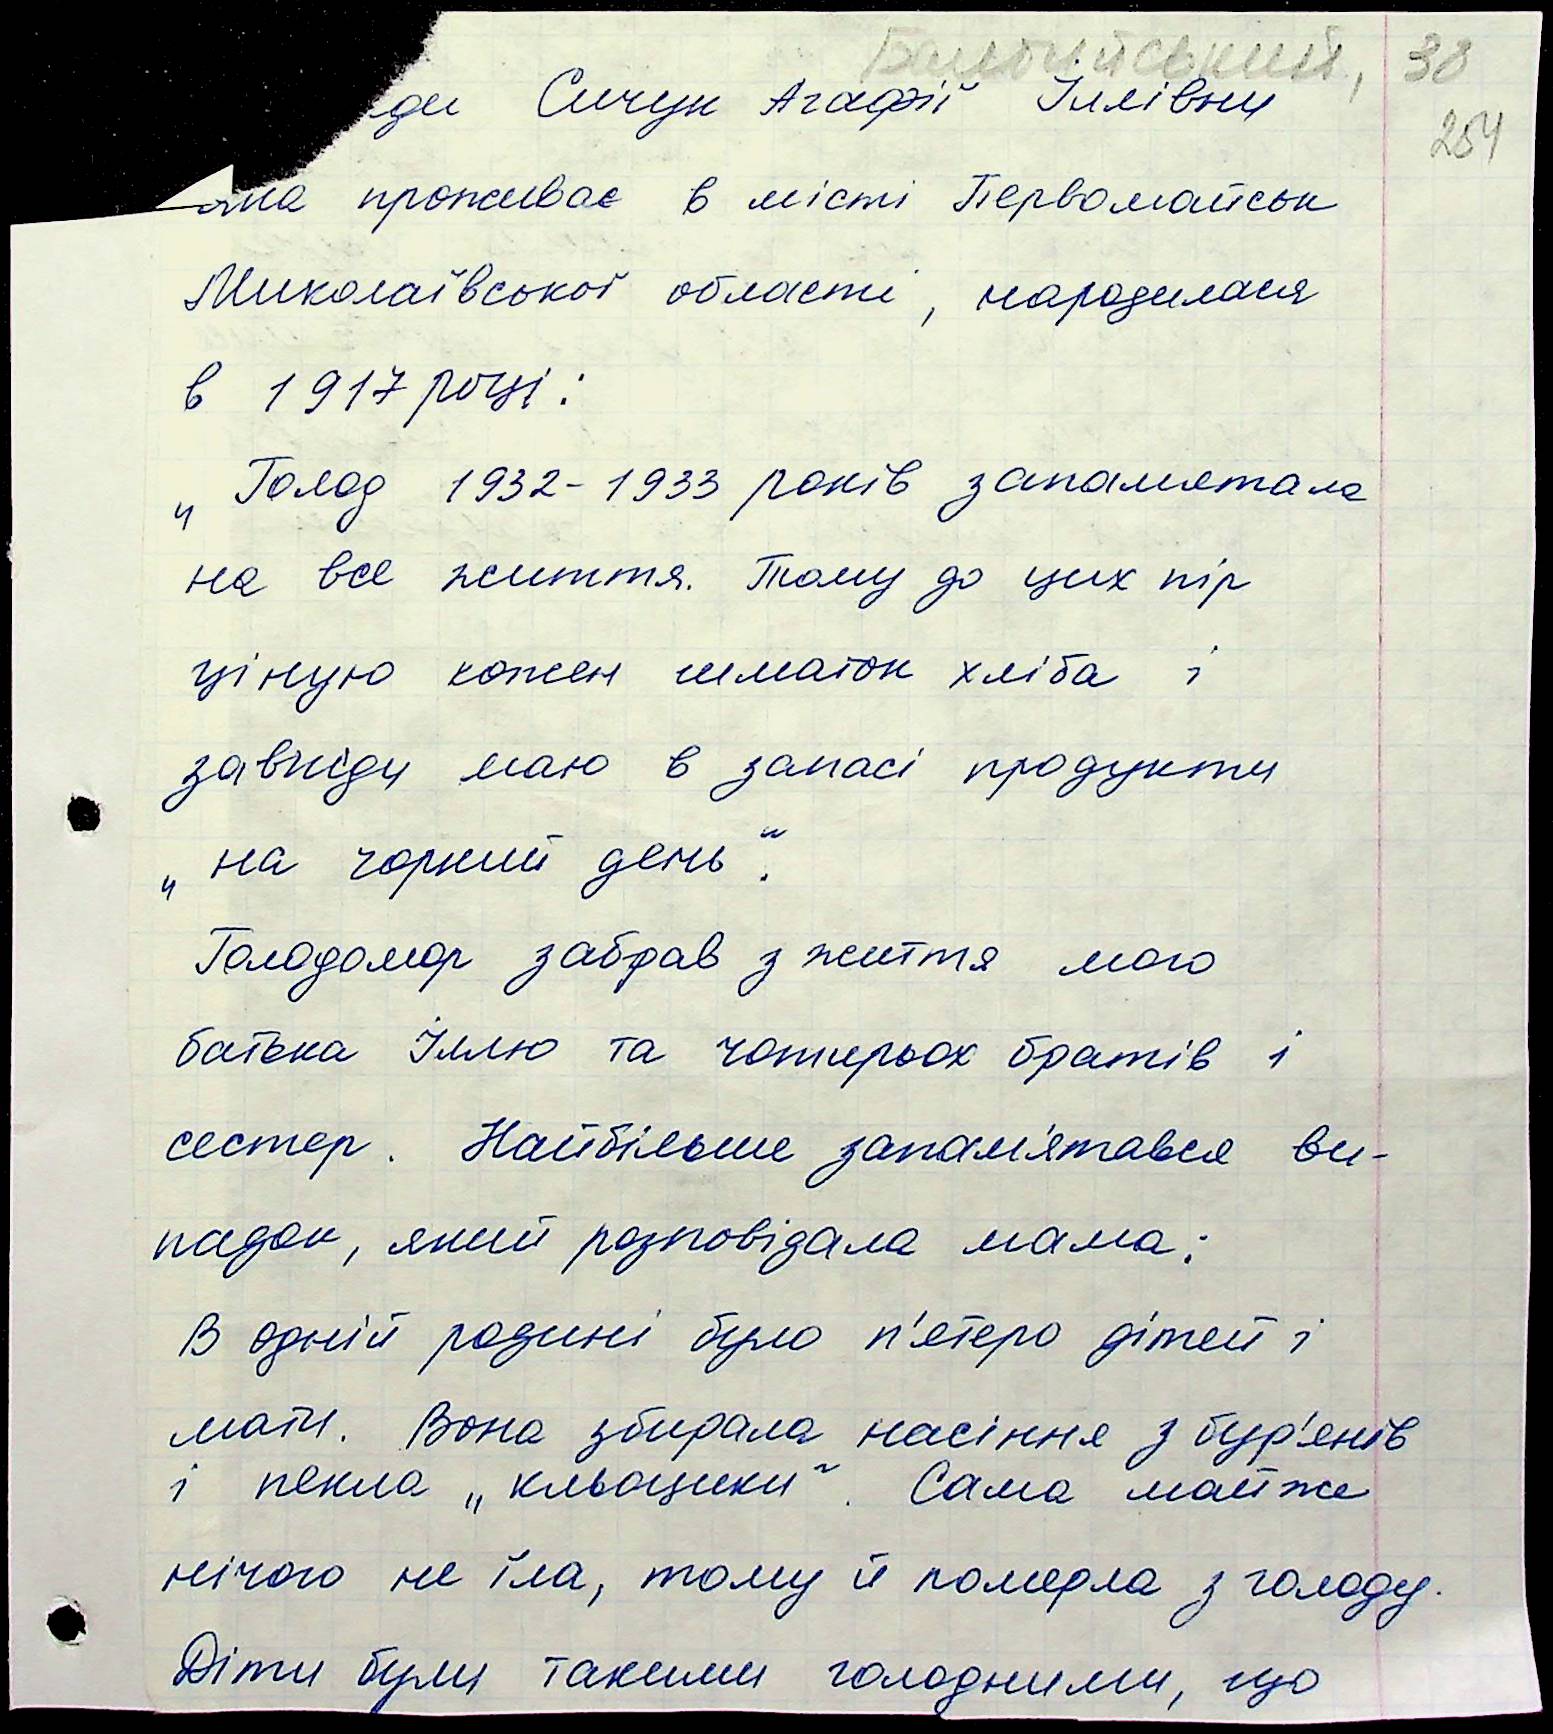 38
254
ди Сичук Агафії Іллівни
яка проживає в місті Первомайськ
Миколаївської області, народилася
в 1917 році:
„Голод 1932-1933 років запамятала
на все життя. Тому до цих пір
ціную кожен шматок хліба і
завжди маю в запасі продукти
„на чорний день“.
Голодомор забрав з життя мого
батька Іллю та чотирьох братів і
сестер. Найбільше запам'ятався ви-
падок, який розповідала мама:
В одній родині було п'ятеро дітей і
мати. Вона збирала насіння з бур'янів
і пекла „кльоцики“. Сама майже
нічого не їла, тому й померла з голоду.
Діти були такими голодними, що